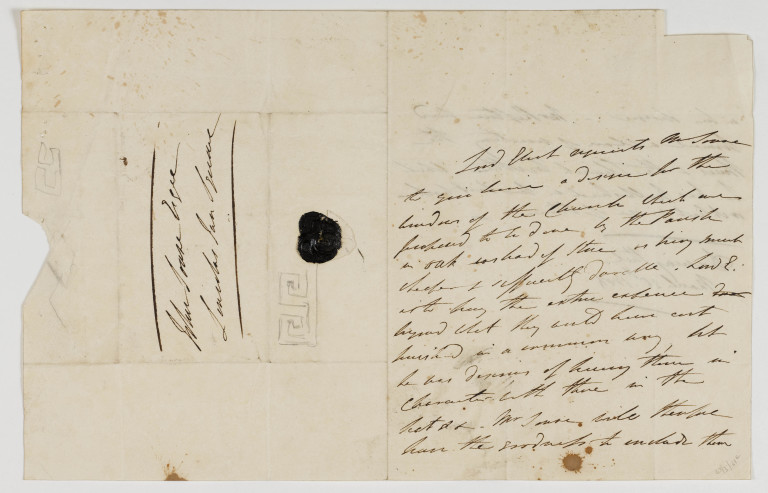 John Soane Esqre
Lincolns Inn Square
Lord Eliot requests Mr Soane
to give him a design for the
windows of the Church which are
proposed to be done by the Parish
in oak instead of stone as being much
cheaper & sufficiently durable. Lord E.
is to pay the extra expence
beyond what they would have cost
finished in a common way, but
he was desirous of having them in
character with those in the
Mr Soane will therefore
have the goodness to include them